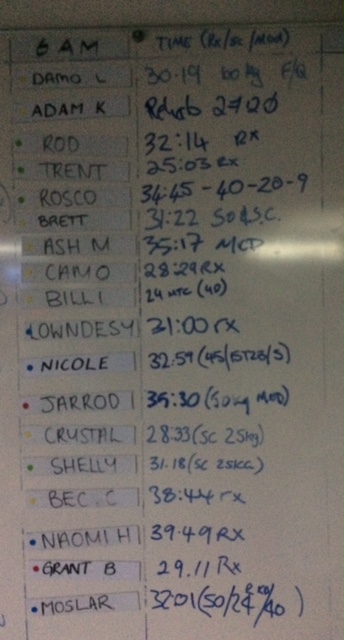 6 AM TIME (RX/SC/MOD)
DAMO L 30.19 60kg E/Q
ADAM K Rehab 2720
ROD 32:14 RX
TRENT 25:03 RX
ROSCO 34:45 - 40-20-9
BRETT 31:22 SC.
ASH M 35:17
CAMO 28:29 RX
BILLI 24 (40)
LOWNDESY 31:00 rx
NICOLE 32:59
JARROD 35:30 (50kg MOD)
CRYSTAL 28:33 (SC 25kg)
SHELLY 31.18 (SC 25KG)
BEC. C 38:44 rx
NAOMI H 39.49 RX
GRANT B 29.11 Rx
MOSLAR 32:01 (50/24/40)